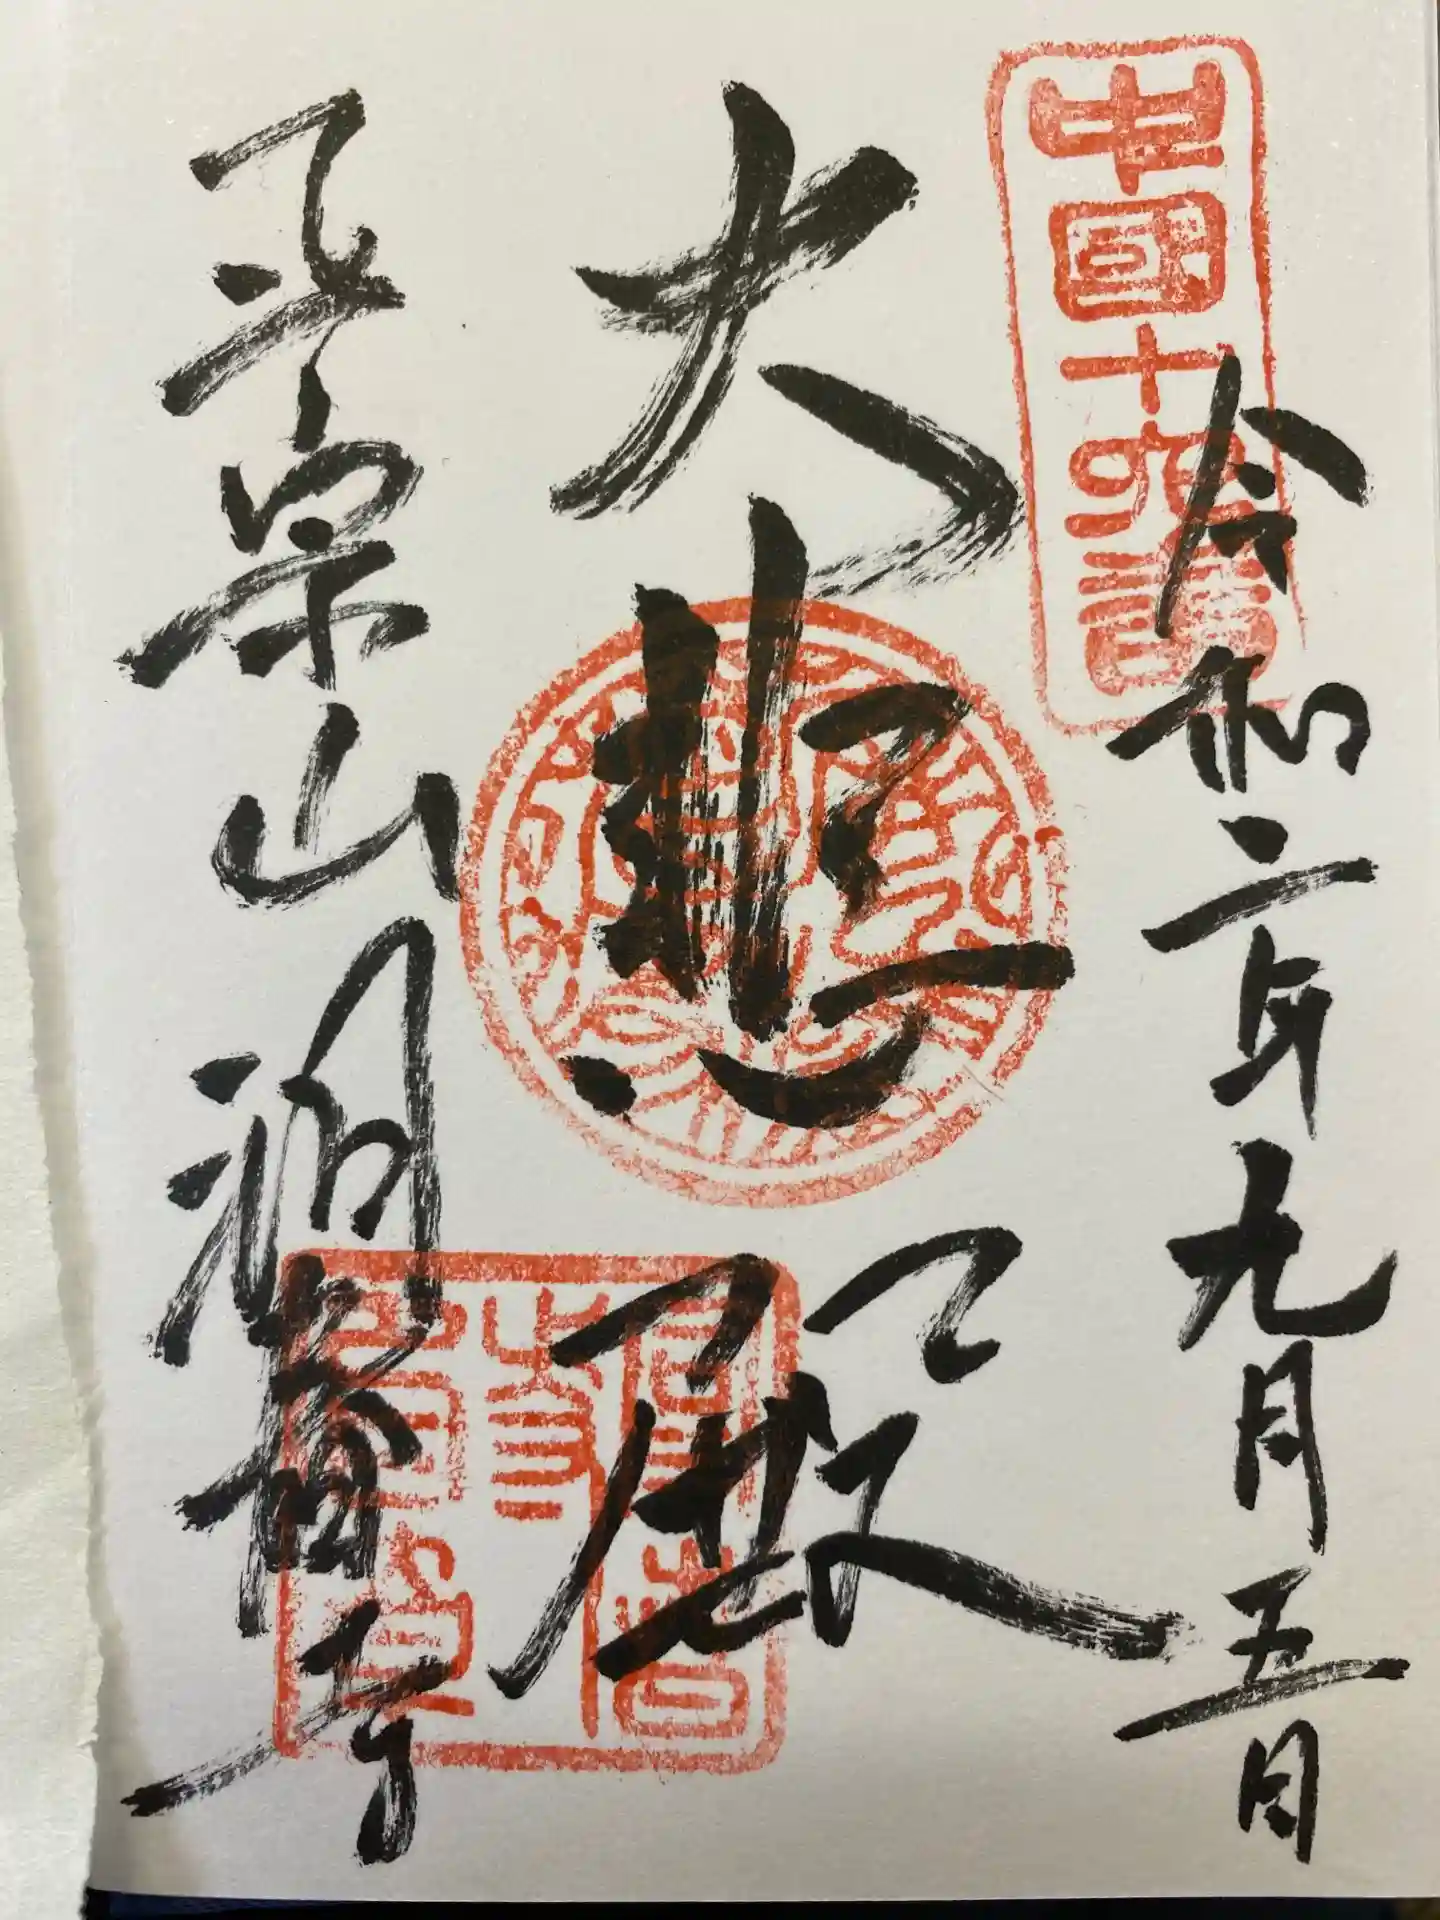 中國十
令和二年九月五日
大悲殿
正宗山洞春寺